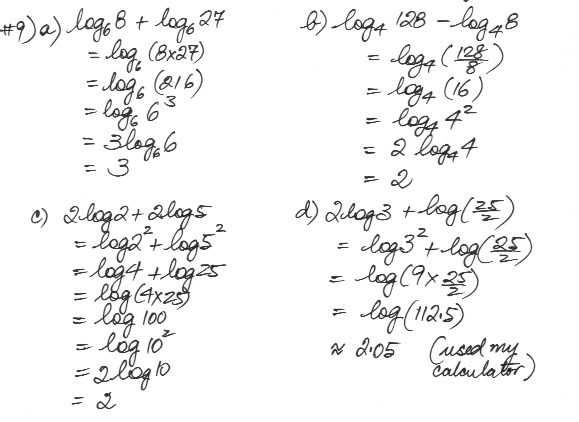 #9) a) log₆8 + log₆27
= log₆(8x27)
= log₆(216)
= log₆ 6³
= 3log₆6
= 3
b) log₄128 - log₄8
= log₄(128/8)
= log₄(16)
= log₄4²
= 2 log₄4
= 2
c) 2log2 + 2log5
= log2² + log5²
= log4 + log25
= log(4x25)
= log 100
= log 10²
= 2log10
= 2
d) 2log3 + log(25/2)
= log3² + log(25/2)
= log(9x25/2)
= log(112.5)
≈ 2.05 (used my
calculator)